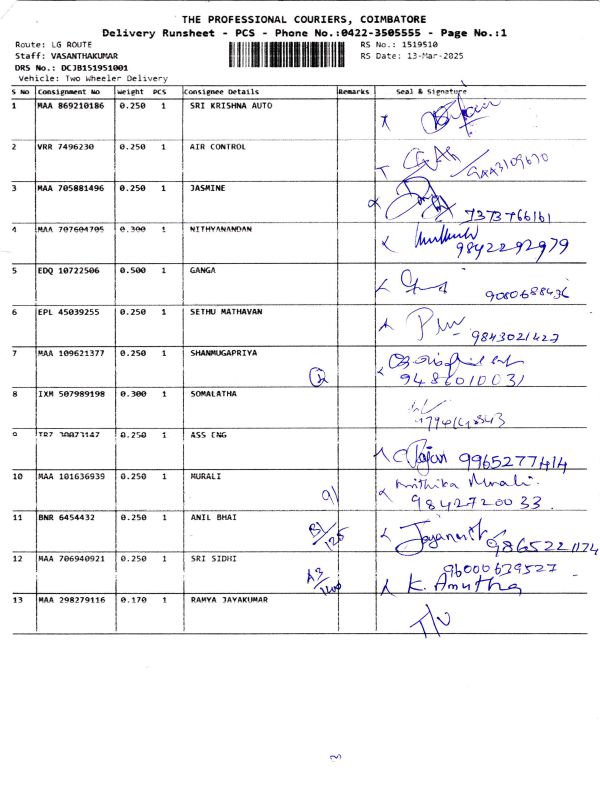 THE PROFESSIONAL COURIERS, COIMBATORE
Delivery Runsheet - PCS - Phone No.:0422-3505555 - Page No.:1
Route: LG ROUTE RS No.: 1519510
Staff: VASANTHAKUMAR RS Date: 13-Mar-2025
DRS No.: DCJB151951001
Vehicle: Two Wheeler Delivery
S No Consignment No Weight PCS Consignee Details Remarks Seal & Signature
1 MAA 869210186 0.250 1 SRI KRISHNA AUTO
2 VRR 7496230 0.250 1 AIR CONTROL
3 MAA 705881496 0.250 1 JASMINE
7373766161
4 MAA 707604705 0.300 1 NITHYANANDAN
9842292979
5 EDQ 10722506 0.500 1 GANGA
9080688436
6 EPL 45039255 0.250 1 SETHU MATHAVAN
9843021427
7 MAA 109621377 0.250 1 SHANMUGAPRIYA
9486010031
8 IXM 507989198 0.300 1 SOMALATHA
9 0.250 1 ASS ENG
9965277414
10 MAA 101636939 0.250 1 MURALI 91 Murali.
9842720033
11 BNR 6454432 0.250 1 ANIL BHAI B1/125
9865221174
12 MAA 706940921 0.250 1 SRI SIDHI
96000639527
K. Amutha
13 MAA 298279116 0.170 1 RAMYA JAYAKUMAR